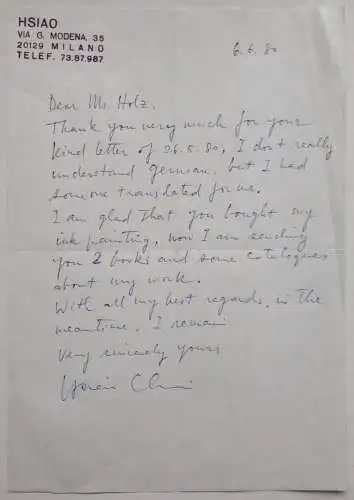 HSIAO
VIA G. MODENA, 35
20129 MILANO
TELEF. 73.87.987
6. 6. 80
Dear Mr. Holz.
Thank you very much for your
kind letter of 26.5.80, I don't really
understand german, but I had
someone translated for me.
I am glad that you bought my
ink painting, now I am sending
you 2 books and some catalogues
about my work.
With all my best regards, in the
meantime, I remain
very sincerely yours
Hsiao Chin